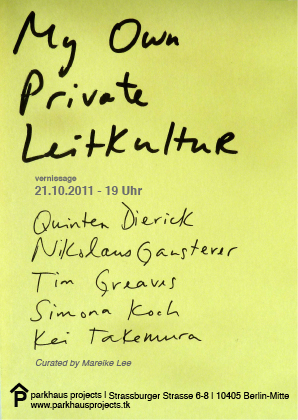 My Own
Private
LeitKultuR
vernissage
21.10.2011 - 19 Uhr
Quinten Dierick
Nikolaus Gansterer
Tim Greaves
Simona Koch
Kei Takemura
Curated by Mareike Lee
parkhaus projects | Strassburger Strasse 6-8 | 10405 Berlin-Mitte
www.parkhausprojects.tk